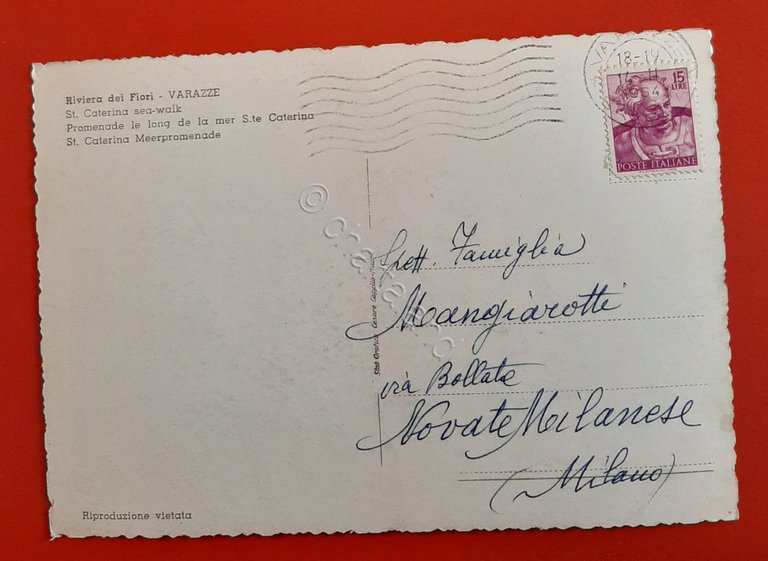 Riviera dei Fiori - VARAZZE
St. Caterina sea-walk
Promenade le long de la mer S.te Caterina
St. Caterina Meerpromenade
18-19
1964
15
LIRE
POSTE ITALIANE
Spett. Famiglia
Mangiarotti
via Bollate
Novate Milanese
(Milano)
Riproduzione vietata